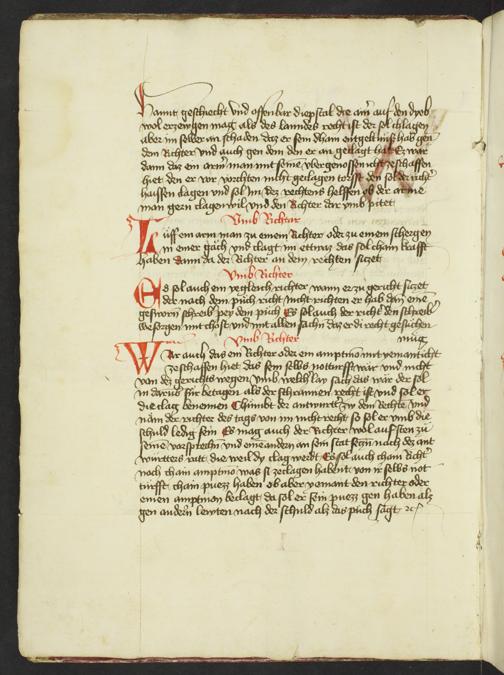 Samnt geschiecht vnd offenbar diepstal die ain auf den dyeb
wol erzewgen mag als des lanndes recht ist der sol chlagen
aber im selber an schaden daz er sein dhain entgeltnuss hab gen
den Richter vnd auch gen dem den er an geklagt hat Er war
dann daz ein arm man mit seine vbergenossen icht zeschaffen
hiet den er vor vorchten nicht geclagen torst den sol der richt
haissen clagen vnd sol im des rechtens helffen ob der arme
man gern clagen wil vnd den Richter dar vmb pitet
vmb Richter
Lüff ein arm man zu einem Richter oder zu einem schergen
in einer gäch vnd clagt im ettwas das sol chain krafft
haben dann da der Richter an dem rechten sitzet
vmb Richter
Es sol auch ein yegleich richter wann er zu gericht sitzet
der nach dem püch richt nicht richten er hab dan eine
gesworn schreib pey dem püch Es sol auch der richt den schreib
besorgen mit chost vnd mit allen sachn daz er di recht gesuchen
vmb Richter müg
War auch das ein Richter oder ein amptman mit yemant icht
zeschaffen hiet das sein selbs notturfft wär vnd nicht
von des gerichts wegen vmb welch lay sach das wär der sol
in darus für betagen als der schrannen recht ist vnd sol er
die clag benemen Chümbt der antwortt zu dem rechte vnd
näm der richter des tags von im nicht recht so sol er vmb die
schuld ledig sein Es mag auch der Richter wol aufsten zu
seine vorsprechn vnd eine andern an sein stat seczn nach des ant
wurtters rät die weil dy clag werdt Es sol auch chain richt
noch chain amptman was si zeclagen habent von ir selbs not
türfft chain puezz haben ob aber yemant den richter oder
einen amptman beclagt da sol er sein puezz gen haben als
gen andern lewten nach der schuld als das püch sagt etc